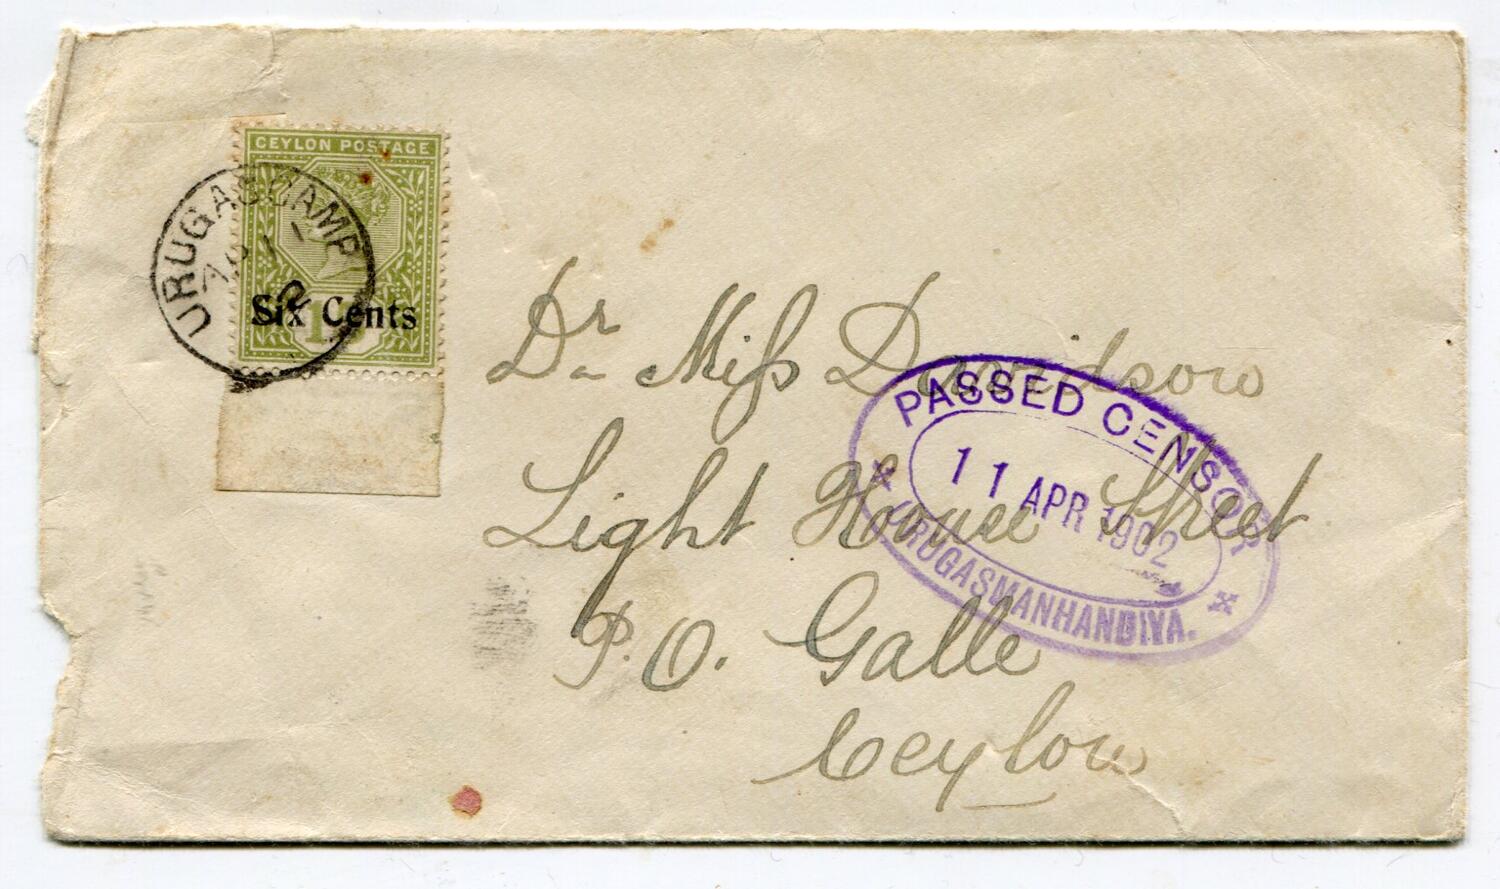 CEYLON POSTAGE
Six Cents
URUGASCAMP
AP 11
2
Dr Miss Davidson
Light House Street
P.O. Galle
Ceylon
PASSED CENSOR
11 APR 1902
URUGASMANHANDIYA.